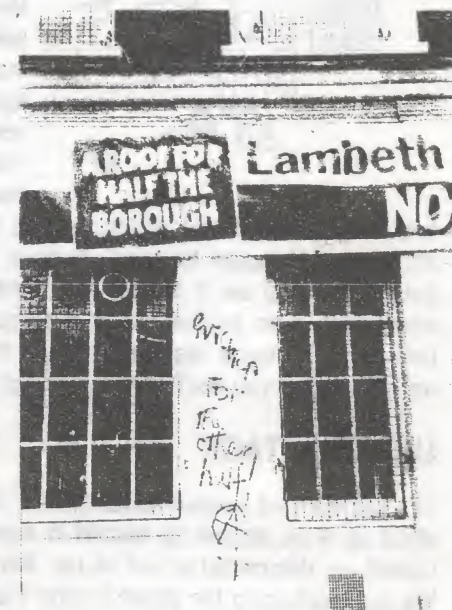 A ROOF FOR
HALF THE
BOROUGH
Lambeth
NO
Eviction
For
the
other
half